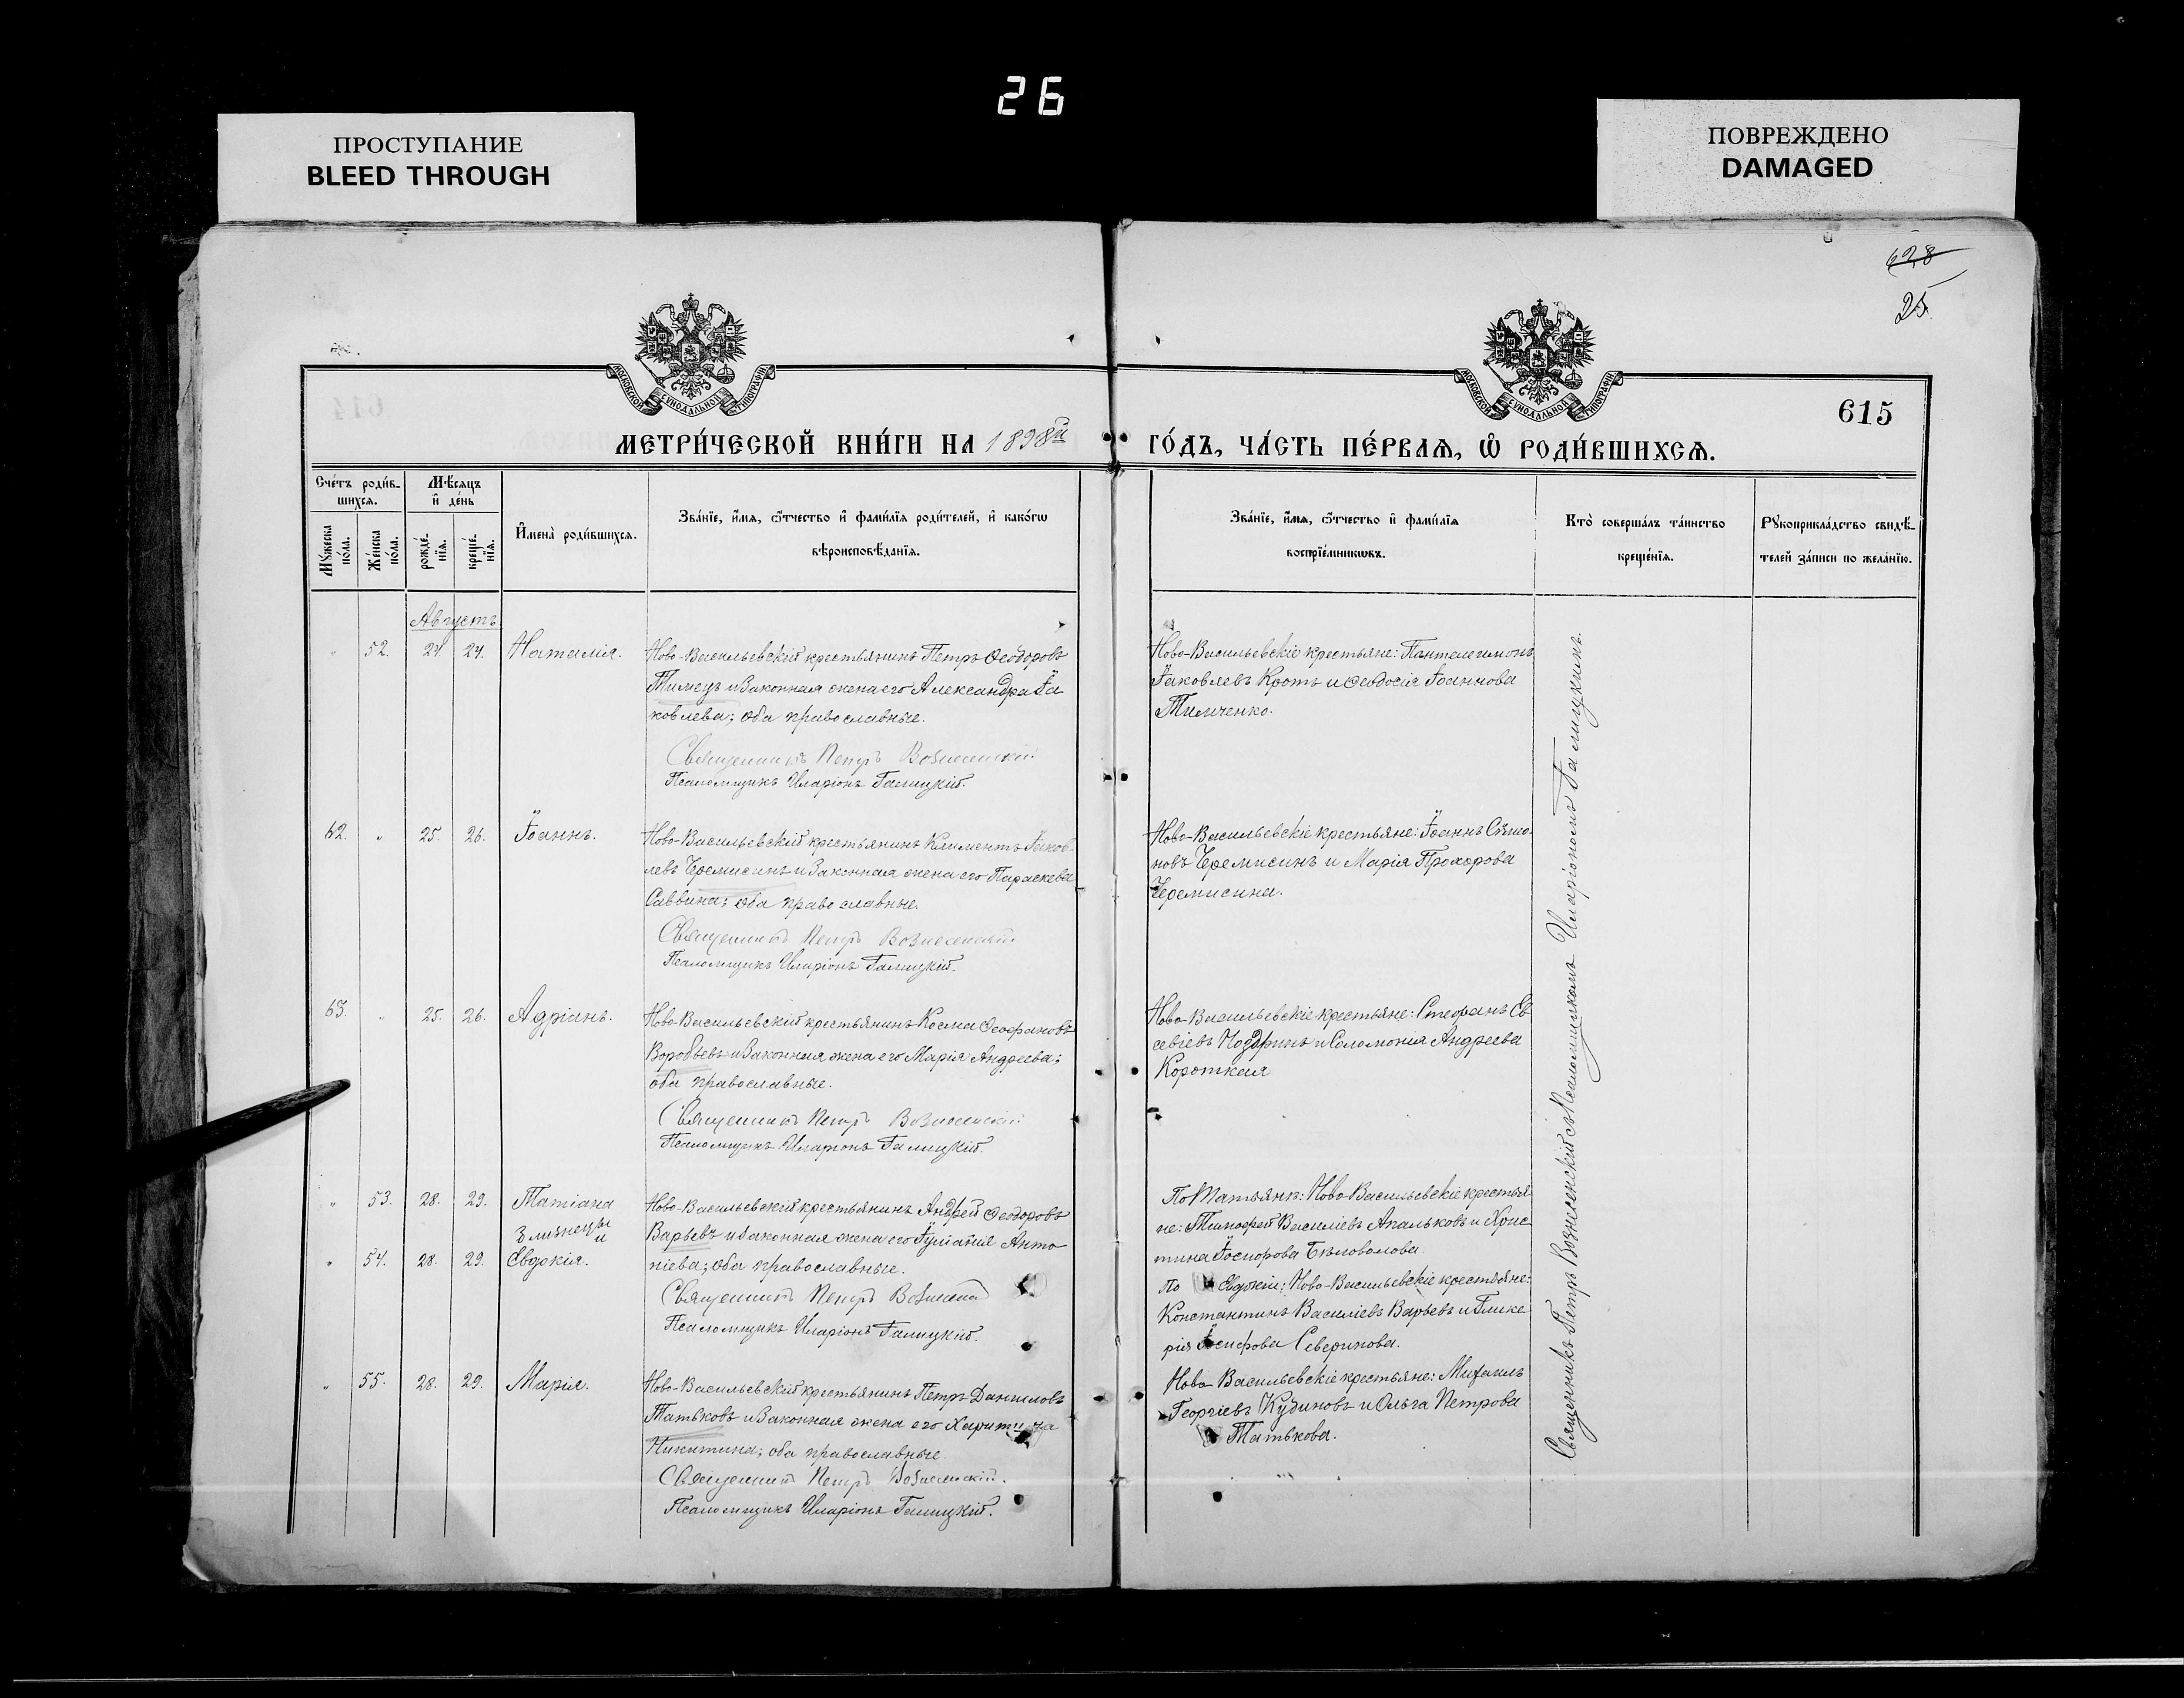 26
ПРОСТУПАНИЕ
BLEED THROUGH
ПОВРЕЖДЕНО
DAMAGED
628
25
615
МОСКОВСКОЙ СУНОДАЛЬНОЙ ТИПОГРАФІИ
МОСКОВСКОЙ СУНОДАЛЬНОЙ ТИПОГРАФІИ
МЕТРИ́ЧЕСКОЙ КНИ́ГИ НА 1898й ГО́ДЪ, ЧА́СТЬ ПЕ́РВАѦ, Ѽ РОДИ́ВШИХСѦ.
Сче́тъ роди́в-
шихсѧ.
Мꙋ́жеска по́ла.
Же́нска по́ла.
Мѣ́сѧцъ
и҆ де́нь
рожде́-нїѧ.
креще́-нїѧ.
И҆мена̀ роди́вшихсѧ.
Зва́нїе, и҆́мѧ, ѻ҆́тчество и҆ фами́лїѧ роди́телей, и҆ како́гѡ
вѣроисповѣ́данїѧ.
Зва́нїе, и҆́мѧ, ѻ҆́тчество и҆ фами́лїѧ
воспрїе́мникѡвъ.
Кто̀ соверша́лъ та́инство
креще́нїѧ.
Рꙋкоприкла́дство свидѣ́-
телей за́писи по жела́нїю.
Августъ
" 52. 24. 24. Наталія.
Ново-Васильевскій крестьянинъ Петръ Ѳеодоровъ
Тимецъ и законная жена его Александра Іа
ковлева; оба православные.
Священникъ Петръ Вознесенскій
Псаломщикъ Иларіонъ Галицкій.
Ново-Васильевскіе крестьяне: Пантелеимонъ
Іаковлевъ Кротъ и Ѳеодосія Іоаннова
Тимченко.
62. " 25. 26. Іоаннъ.
Ново-Васильевскій крестьянинъ Климентъ Іаков-
левъ Черемисинъ и законная жена его Параскева
Саввина; оба православные.
Священникъ Петръ Вознесенскій
Псаломщикъ Иларіонъ Галицкій.
Ново-Васильевскіе крестьяне: Іоаннъ Симо-
новъ Черемисинъ и Марія Прохорова
Черемисина.
63. " 25. 26. Адріанъ.
Ново-Васильевскій крестьянинъ Косма Ѳеофановъ
Воробьевъ и законная жена его Марія Андреева;
оба православные.
Священникъ Петръ Вознесенскій
Псаломщикъ Иларіонъ Галицкій.
Ново-Васильевскіе крестьяне: Стефанъ Ев
севіевъ и Соломонія Андреева
Короткая
" 53. 28. 29. Татіана
близнецы и
" 54. 28. 29. Евдокія.
Ново-Васильевскій крестьянинъ Андрей Ѳеодоровъ
Варьевъ и законная жена его Іуліанія Анто
ніева; оба православные.
Священникъ Петръ Вознесенскій
Псаломщикъ Иларіонъ Галицкій.
По Татьянѣ: Ново-Васильевскіе крестья
не: Тимофей Василіевъ Апальковъ и Хрис
тина Іосифова Бѣловолова.
По Евдокіи: Ново-Васильевскіе крестьяне:
Константинъ Василіевъ Варьевъ и Глике
рія Іосифова Северинова.
" 55. 28. 29. Марія.
Ново-Васильевскій крестьянинъ Петръ Даниловъ
Татьковъ и законная жена его Харитина
Никитина; оба православные.
Священникъ Петръ Вознесенскій.
Псаломщикъ Иларіонъ Галицкій.
Ново-Васильевскіе крестьяне: Михаилъ
Георгіевъ Кудиновъ и Ольга Петрова
Татькова.
Священникъ Петръ Вознесенскій съ Псаломщикомъ Иларіономъ Галицкимъ.